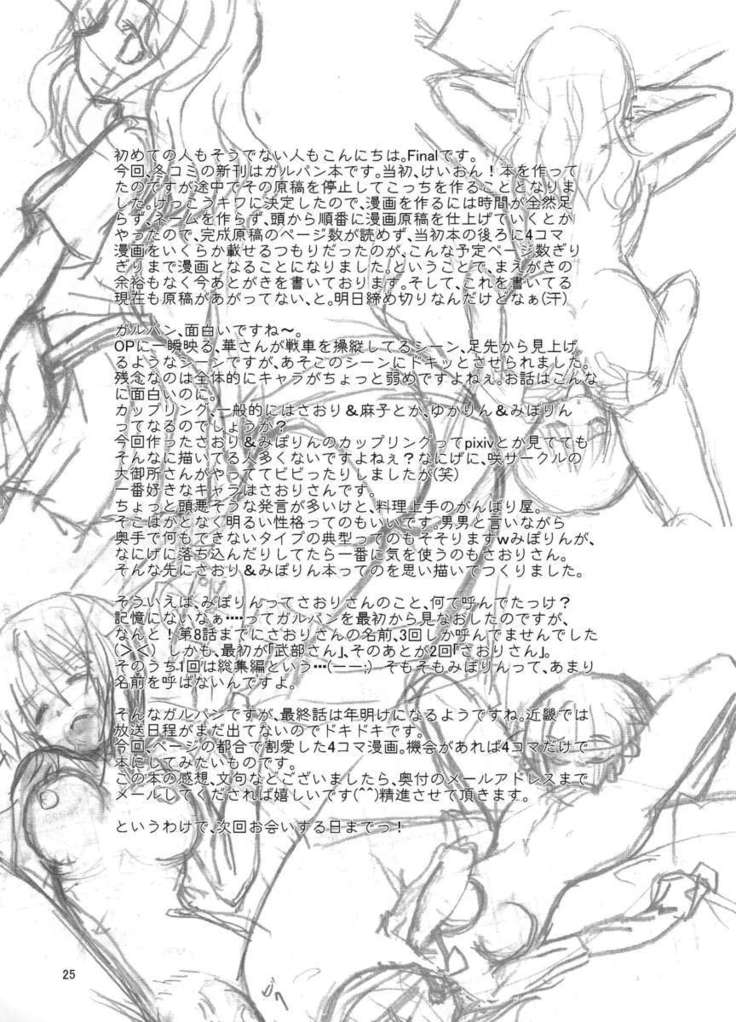 初めての人もそうでない人もこんにちは。Finalです。
今回、冬コミの新刊はガルパン本です。当初、けいおん！本を作って
たのですが途中でその原稿を停止してこっちを作ることとなりま
した。けっこうキワに決定したので、漫画を作るには時間が全然足
らず、ネームを作らず、頭から順番に漫画原稿を仕上げていくとか
やったので、完成原稿のページ数が読めず、当初本の後ろに4コマ
漫画をいくらか載せるつもりだったのが、こんな予定ページ数ぎり
ぎりまで漫画となることになりました。ということで、まえがきの
余裕もなく今あとがきを書いております。そして、これを書いてる
現在も原稿があがってない、と。明日締め切りなんだけどなぁ(汗)
ガルパン、面白いですね～。
OPに一瞬映る、華さんが戦車を操縦してるシーン、足先から見上げ
るようなシーンですが、あそこのシーンにドキッとさせられました。
残念なのは全体的にキャラがちょっと弱めですよねぇ。お話はこんな
に面白いのに。
カップリング、一般的にはさおり＆麻子とか、ゆかりん＆みぽりん
ってなるのでしょうか？
今回作ったさおり＆みぽりんのカップリングってpixivとか見てても
そんなに描いてる人多くないですよねぇ？なにげに、咲サークルの
大御所さんがやっててビビったりしましたが(笑)
一番好きなキャラはさおりさんです。
ちょっと頭悪そうな発言が多いけど、料理上手のがんばり屋。
そこはかとなく明るい性格ってのもいいです。男男と言いながら
奥手で何もできないタイプの典型ってのもそそりますwみぽりんが、
なにげに落ち込んだりしてたら一番に気を使うのもさおりさん。
そんな先にさおり＆みぽりん本ってのを思い描いてつくりました。
そういえば、みぽりんってさおりさんのこと、何て呼んでたっけ？
記憶にないなぁ‥‥ってガルパンを最初から見なおしたのですが、
なんと！第8話までにさおりさんの名前、3回しか呼んでませんでした
(＞＜)　しかも、最初が『武部さん』、そのあとが2回『さおりさん』。
そのうち1回は総集編という…(ーー;)　そもそもみぽりんって、あまり
名前を呼ばないんですよ。
そんなガルパンですが、最終話は年明けになるようですね。近畿では
放送日程がまだ出てないのでドキドキです。
今回、ページの都合で割愛した4コマ漫画。機会があれば4コマだけで
本にしてみたいものです。
この本の感想、文句などございましたら、奥付のメールアドレスまで
メールしてくだされば嬉しいです(^^)精進させて頂きます。
というわけで、次回お会いする日までっ！
25